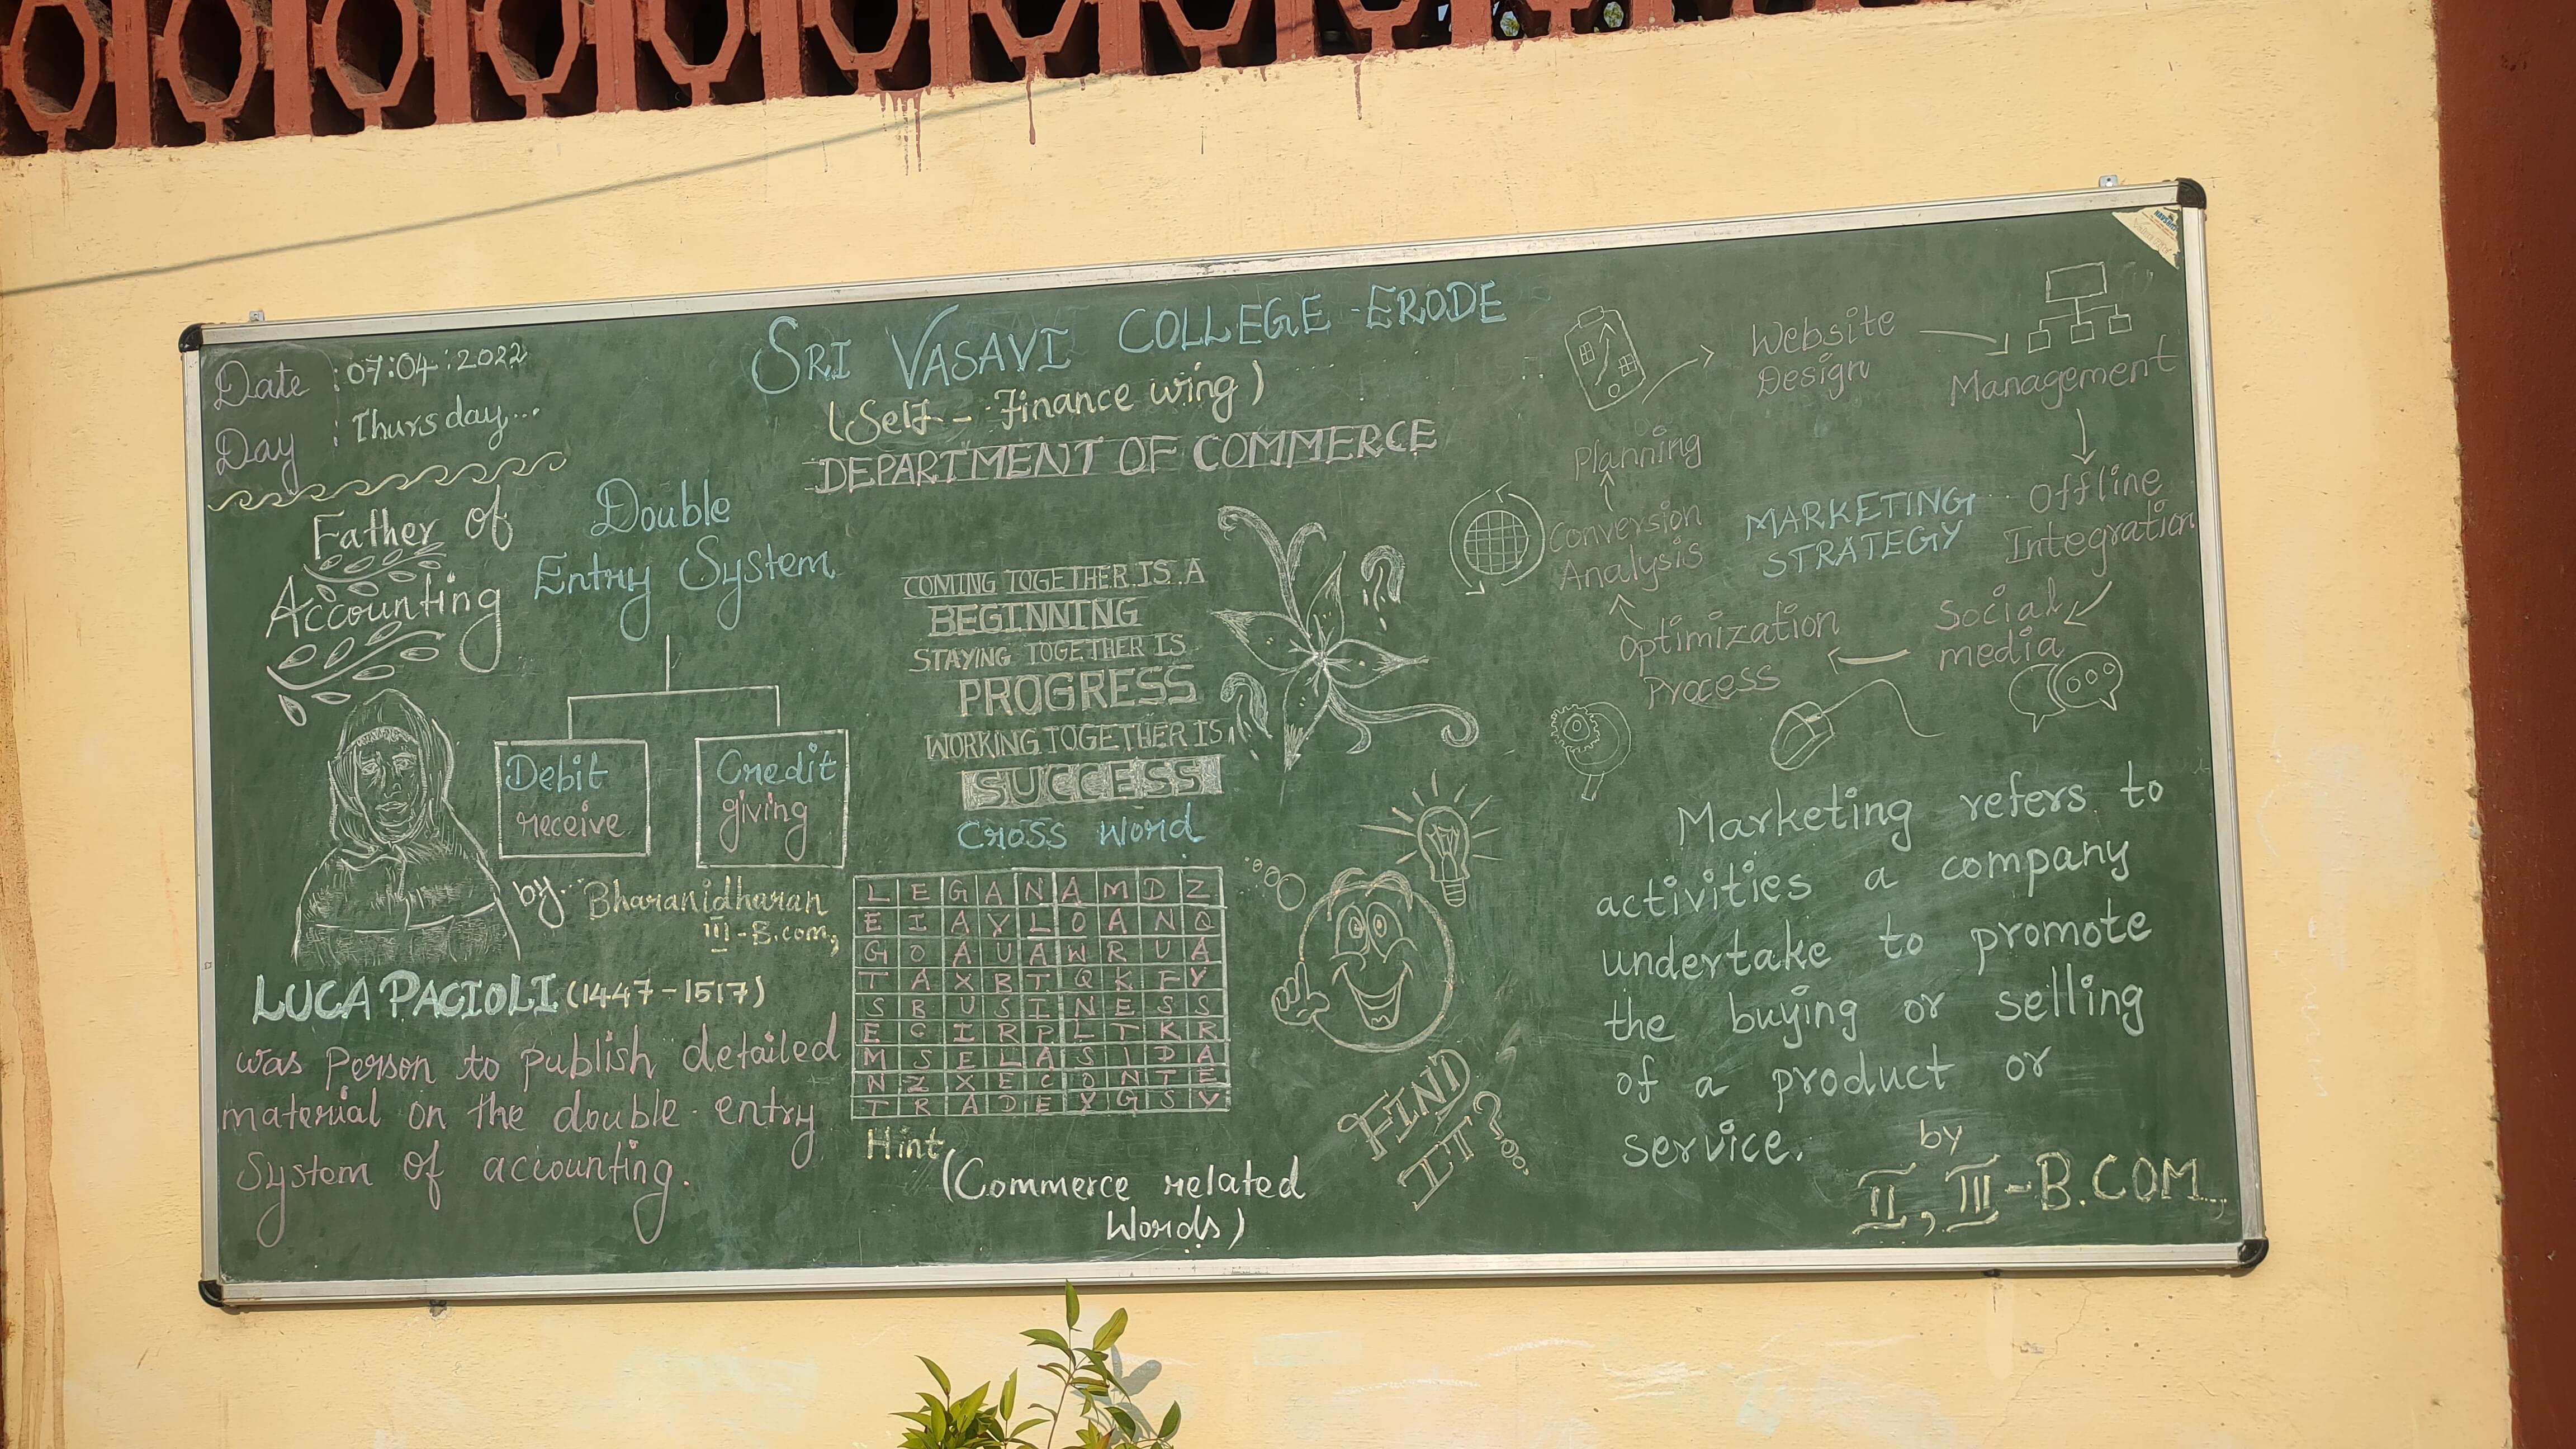 SRI VASAVI COLLEGE - ERODE
(Self - Finance wing)
DEPARTMENT OF COMMERCE
Date : 07:04:2022
Day : Thursday...
Father of
Accounting
Double
Entry System
Debit
receive
Credit
giving
by... Bharanidharan
III - B.com,
LUCA PACIOLI (1447-1517)
was Person to publish detailed
material on the double-entry
System of accounting.
COMING TOGETHER IS A
BEGINNING
STAYING TOGETHER IS
PROGRESS
WORKING TOGETHER IS
SUCCESS
Cross Word
L E G A N A M D Z
E I A Y L O A N Q
G O A U A W R U A
T A X B T Q K F Y
S B U S I N E S S
E C I R P L T K R
M S E L A S I D A
N Z X E C O N T E
T R A D E X G S V
Hint
(Commerce related
Words)
FIND
IT?
Website
Design
Management
Offline
Integration
Social
media
Optimization
Process
Conversion
Analysis
Planning
MARKETING
STRATEGY
Marketing refers to
activities a company
undertake to promote
the buying or selling
of a product or
service.
by
II, III - B.COM.,